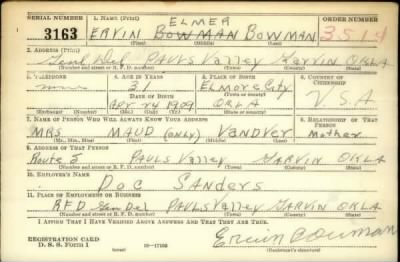 SERIAL NUMBER 1. NAME (Print) ELMER ORDER NUMBER
3163 ERVIN BOWMAN BOWMAN 3514
(First) (Middle) (Last)
2. ADDRESS (Print)
Genl Del PAULS Valley GARVIN OKLA
(Number and street or R. F. D. number) (Town) (County) (State)
3. TELEPHONE 4. AGE IN YEARS 5. PLACE OF BIRTH 6. COUNTRY OF CITIZENSHIP
none 31 ELmore City
DATE OF BIRTH
APR 24 1909 OKLA U.S.A
(Exchange) (Number) (Mo.) (Day) (Yr.) (State or country)
7. NAME OF PERSON WHO WILL ALWAYS KNOW YOUR ADDRESS 8. RELATIONSHIP OF THAT PERSON
MRS MAUD (ONLY) VANDVER Mother
(Mr., Mrs., Miss) (First) (Middle) (Last)
9. ADDRESS OF THAT PERSON
Route 5 PAULS Valley GARVIN OKLA
(Number and street or R. F. D. number) (Town) (County) (State)
10. EMPLOYER'S NAME
DOC SANDERS
11. PLACE OF EMPLOYMENT OR BUSINESS
RFD Gen Del PAULS Valley GARVIN OKLA
(Number and street or R. F. D. number) (Town) (County) (State)
I AFFIRM THAT I HAVE VERIFIED ABOVE ANSWERS AND THAT THEY ARE TRUE.
REGISTRATION CARD
D. S. S. FORM 1 (over) 16-17105
Ervin Bowman
(Registrant's signature)